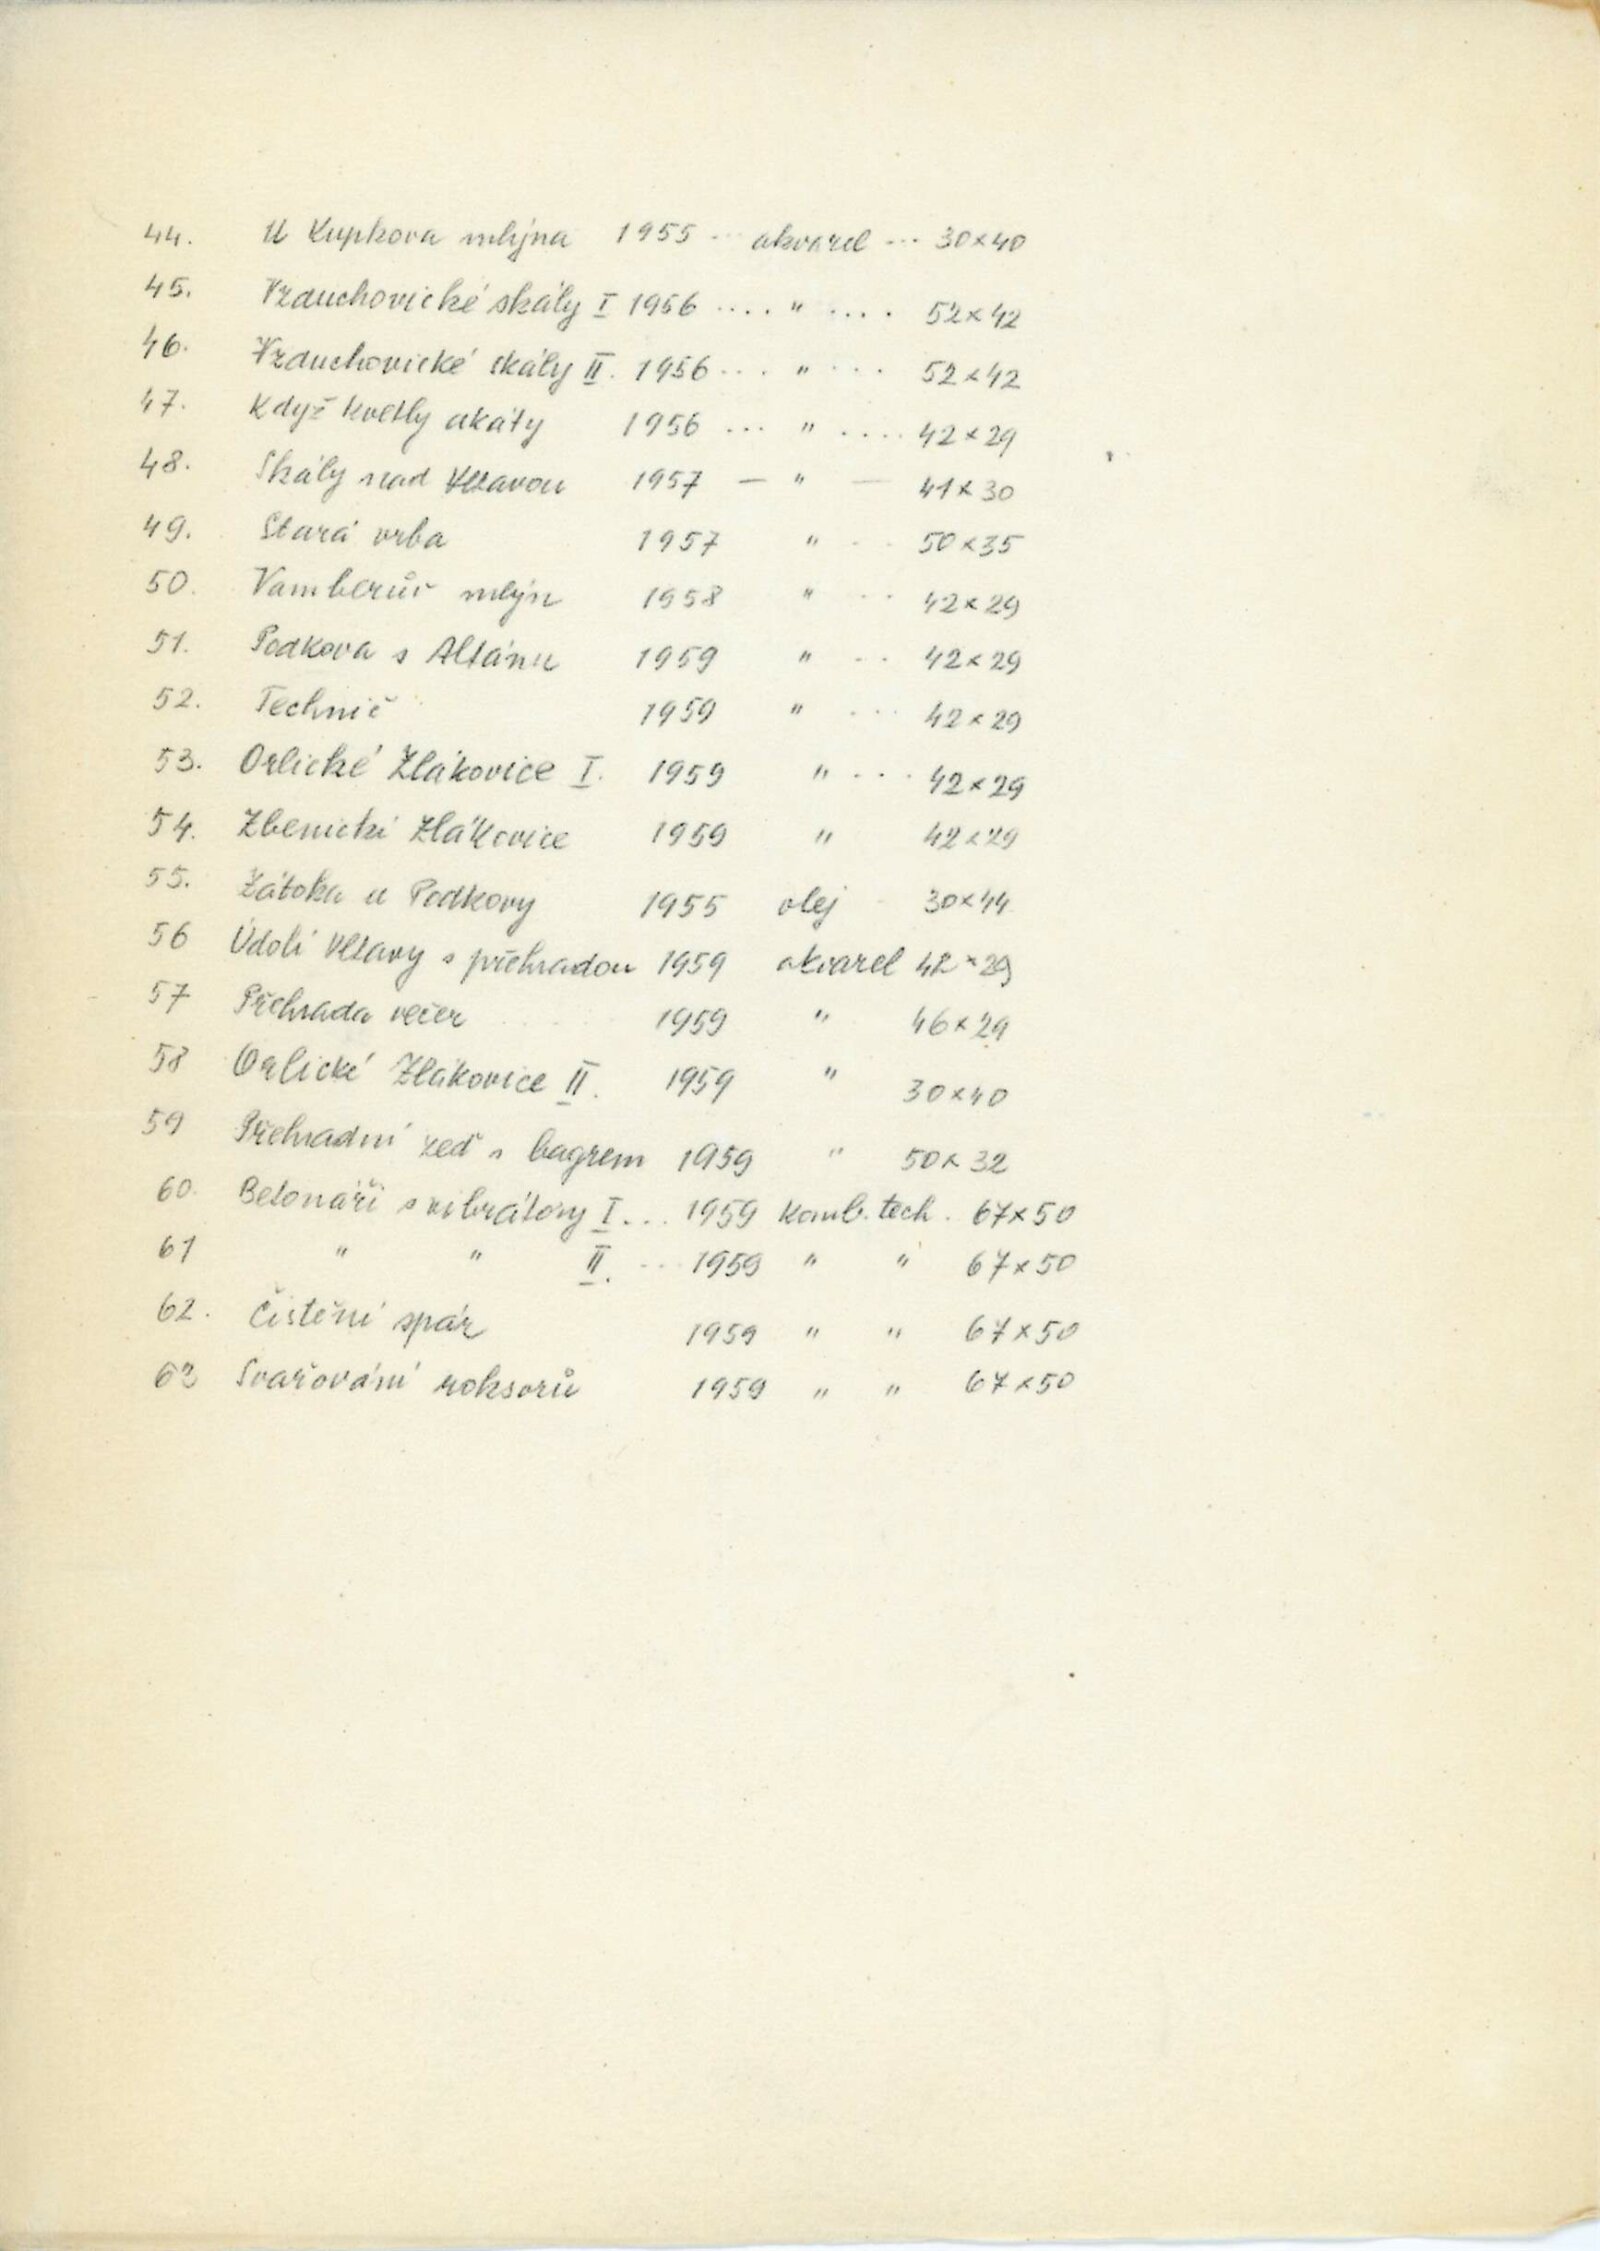 44. U Kupkova mlýna 1955 ... akvarel ... 30×40
45. Vzduchovické skály I 1956 .... " .... 52×42
46. Vzduchovické skály II. 1956 ... " ... 52×42
47. Když kvetly akáty 1956 ... " .... 42×29
48. Skály nad Vltavou 1957 — " — 41×30
49. Stará vrba 1957 " .. 50×35
50. Vamberův mlýn 1958 " .. 42×29
51. Podkova s Altánu 1959 " ... 42×29
52. Technič 1959 " ... 42×29
53. Orlické Zlákovice I. 1959 " ... 42×29
54. Zbenické Zlákovice 1959 " 42×29
55. Zátoka u Podkovy 1955 olej 30×44
56 Údolí Vltavy s přehradou 1959 akvarel 42×29
57 Přehrada večer 1959 " 46×29
58 Orlické Zlákovice II. 1959 " 30×40
59 Přehradní zeď s bagrem 1959 " 50×32
60. Betonáři s vibrátory I... 1959 komb. tech. 67×50
61 " " II. ... 1959 " " 67×50
62. Čistění spár 1959 " " 67×50
63 Svařování roksorů 1959 " " 67×50